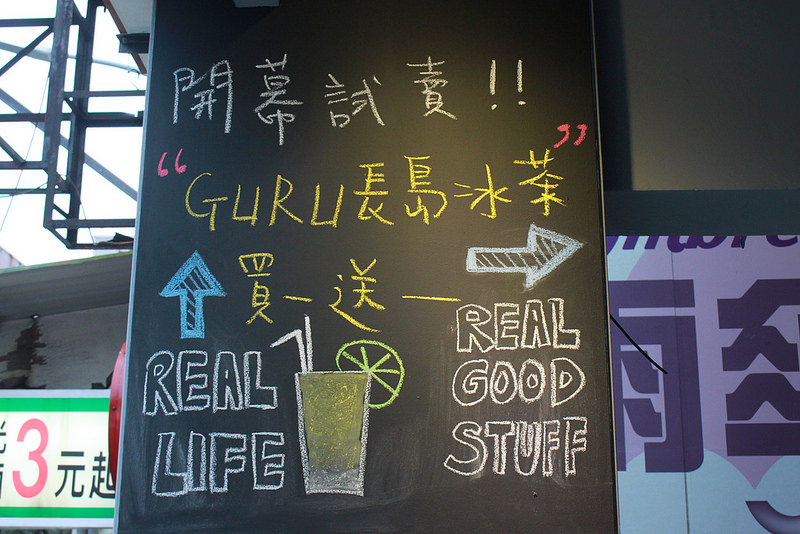 開幕試賣!!
“GURU長島冰茶”
買一送一
REAL
LIFE
REAL
GOOD
STUFF
3元起